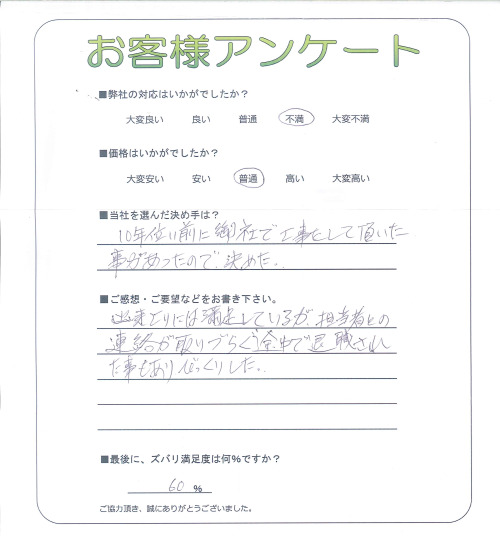 お客様アンケート
■弊社の対応はいかがでしたか？
大変良い 良い 普通 不満 大変不満
■価格はいかがでしたか？
大変安い 安い 普通 高い 大変高い
■当社を選んだ決め手は？
10年位い前に御社で工事をして頂いた
事があったので、決めた..
■ご感想・ご要望などをお書き下さい。
出来上りには満足しているが、担当者との
連絡が取りづらく途中で退職され
た事もありびっくりした..
■最後に、ズバリ満足度は何%ですか？
60 %
ご協力頂き、誠にありがとうございました。